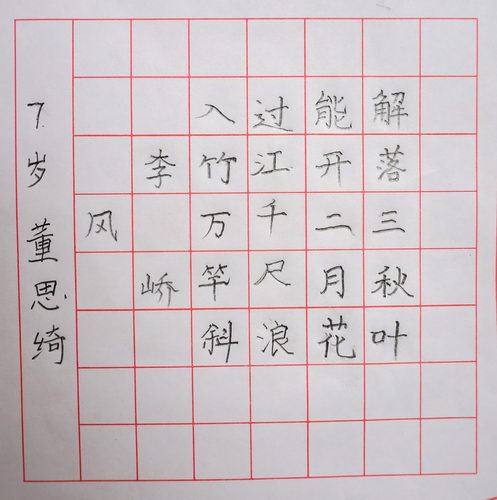 解落三秋叶
能开二月花
过江千尺浪
入竹万竿斜
李峤
风
7岁 董思绮